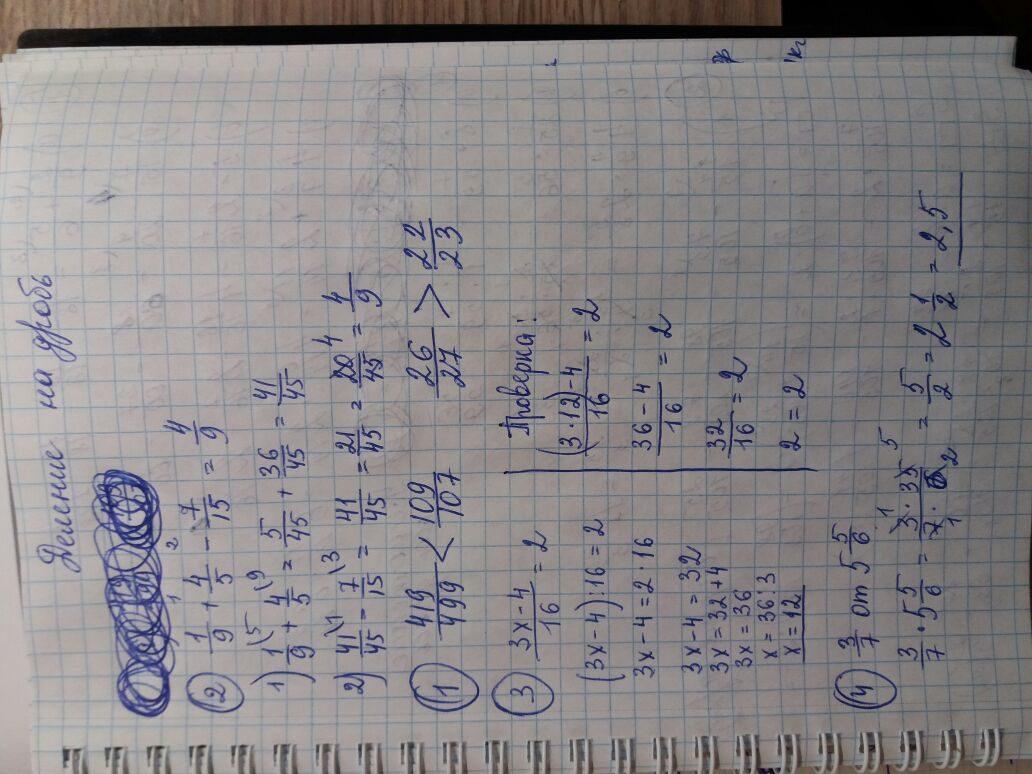 Деление на дробь
② 1/9 + 4/5 - 7/15 = 4/9
1) 1/9 \5 + 4/5 \9 = 5/45 + 36/45 = 41/45
2) 41/45 \1 - 7/15 \3 = 41/45 = 21/45 = 20/45 4 = 4/9
① 419/499 < 109/107 26/27 > 22/23
③ (3x-4)/16 = 2
(3x-4):16=2
3x-4=2·16
3x-4=32
3x=32+4
3x=36
x=36:3
x=12
Проверка!
((3·12)-4)/16 = 2
(36-4)/16 = 2
32/16 = 2
2=2
④ 3/7 от 5 5/6
3/7 · 5 5/6 = (3·35)/(7·6) = 5/2 = 2 1/2 = 2,5
кг